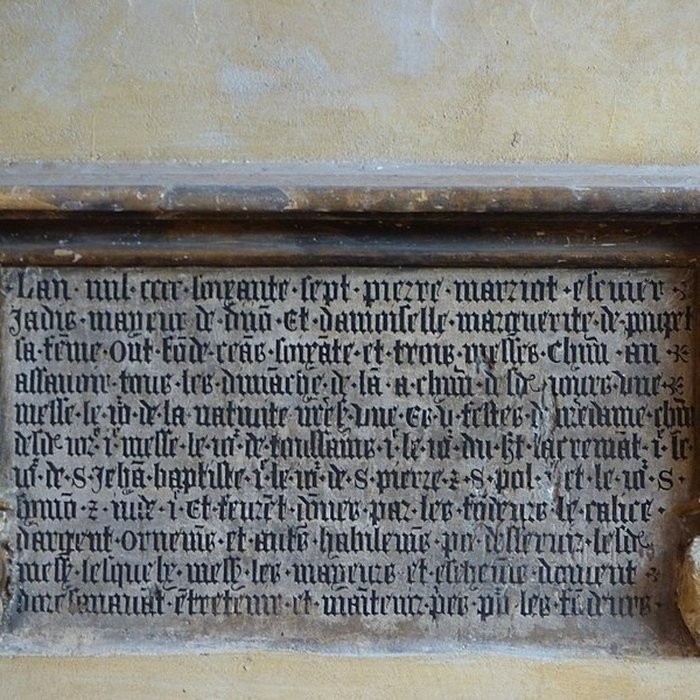 Lan · mil · cccc · soixante · sept · pierre · marriot · escuier ·
Jadis · mayeur · de · diuō · Et · damoiselle · marguerite · de · poupet
sa · fēme · Out · fōde · ceās · soixāte · et · trois · messes · Chūn · an
assauoir · tous · les · dimāche · de · lā · a · chūn · desd · iours · vne
messe · le · io · de · la · natiuite · vne · Es · v · festes · de · dame · chūn
desd · io · i · messe · le · io · de · toussains · i · le · io · du · st · sacremāt · i ·
io · de · S · Jehā · baptiste · i · le · io · de · S · pierre · z · S · pol · et · le · io · S ·
symō · z · iude · i · Et · feurēt · dōnes · par · les · fōdeurs · le · calice ·
dargent · ornemēs · et · autrs · habillemēs · po · desseruir · lesd
mess · lesquelx · mess · les · mayeurs · et · escheuīs · doiuent
doresanauāt · ētretenir · et · māteur · les · fōdeurs ·